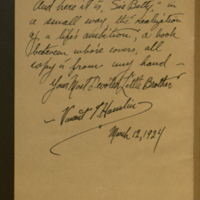 And here it is, "Sis Betty," - in
a small way the realization
of a life's ambition; a book
between whose covers, all
copy is from my hand -
Your Most Devoted Little Brother
- Vincent T. Hamlin
March 12, 1924